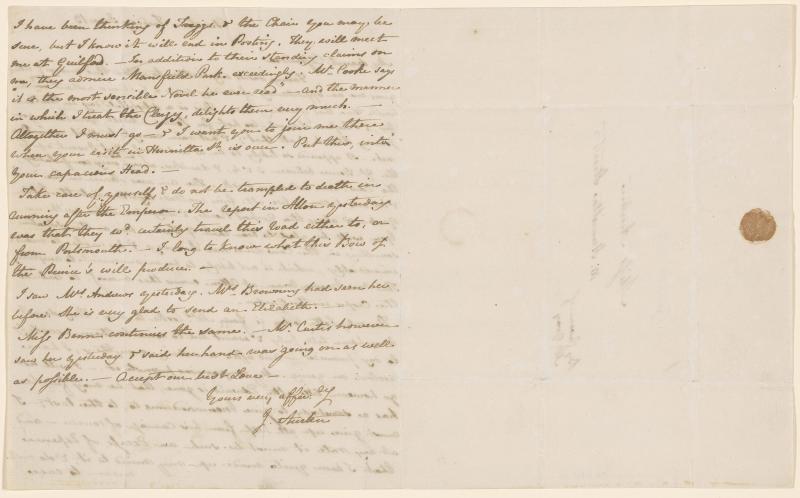 I have been thinking of Triggs & the Chair you may be
sure, but I know it will end in Posting. They will meet
me at Guilford. — In addition to their standing claims on
me, they admire Mansfield Park exceedingly. Mr. Cooke says
"it is the most sensible Novel he ever read" — and the manner
in which I treat the Clergy, delights them very much. —
Altogether I must go — & I want you to join me there
when your visit in Henrietta St. is over. Put this into
your capacious Head. —
Take care of yourself, & do not be trampled to death in
running after the Emperor. The report in Alton yesterday
was that they wd. certainly travel this road either to, or
from Portsmouth. — I long to know what this Bow of
the Prince's will produce. —
I saw Mrs. Andrews yesterday. Mrs. Browning had seen her
before. She is very glad to send an Elizabeth.
Miss Benn continues the same. — Mr. Curtis however
saw her yesterday & said her hand was going on as well
as possible. — Accept our best Love —
Yours very affec:ly
J. Austen